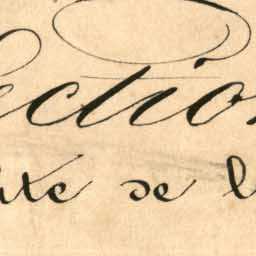 ection
ite se l